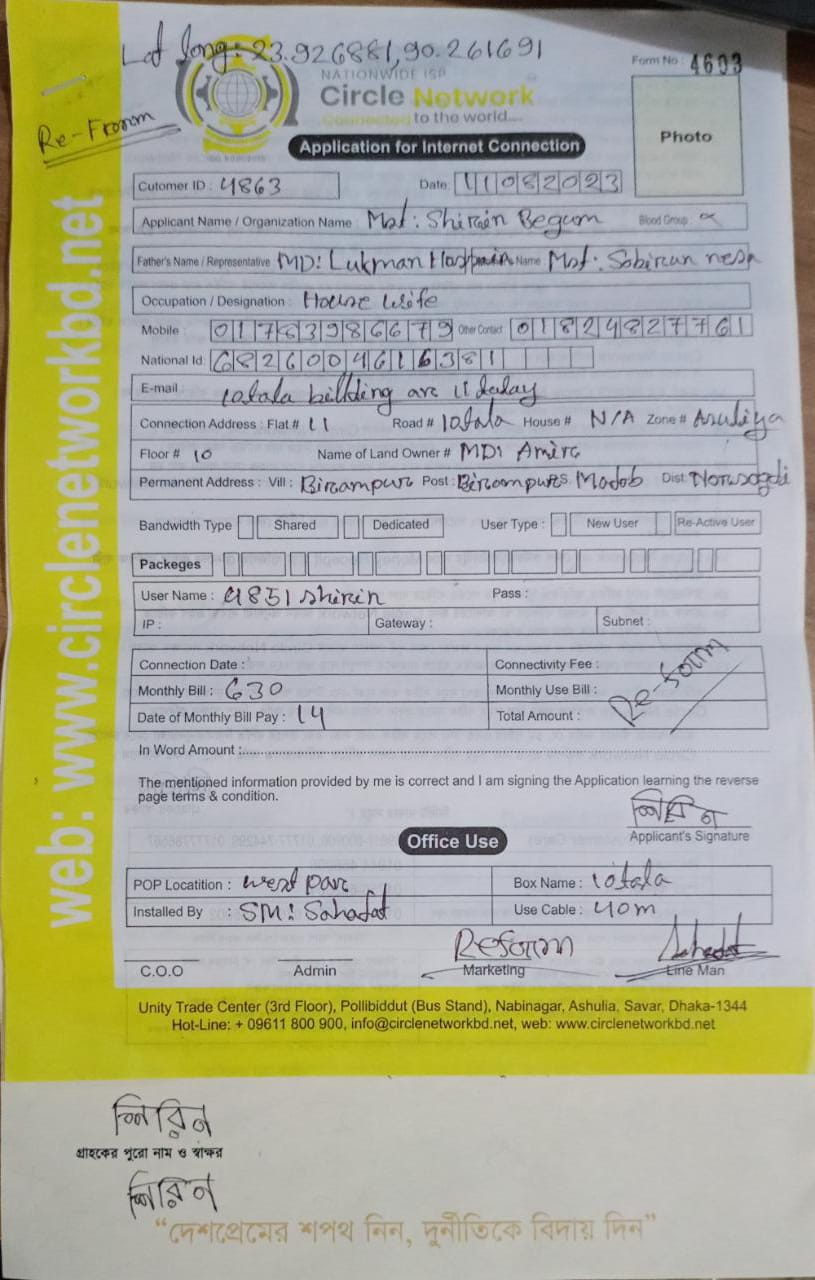 Lat long: 23.926881,90.261691
Form No : 4603
NATIONWIDE ISP
Circle Network
Connected to the world....
Re-From
Photo
Application for Internet Connection
Cutomer ID : 4863 Date: 11082023
Applicant Name / Organization Name : Mst: Shirin Begum Blood Group :
Father's Name / Representative MD: Lukman Name Mst:
Occupation / Designation : House wife
Mobile : 01783986679 Other Contact 01824827761
National Id: 6826004616381
E-mail 10tala billding are
Connection Address : Flat # 11 Road # 10tala House # N/A Zone # Asuliya
Floor # 10 Name of Land Owner # MD: Amir
Permanent Address : Vill : Birampur Post : Birampur PS Madob Dist
Bandwidth Type Shared Dedicated User Type : New User Re-Active User
Packeges
User Name : 4851 shirin Pass :
IP : Gateway : Subnet :
Connection Date : Connectivity Fee :
Monthly Bill : 630 Monthly Use Bill :
Date of Monthly Bill Pay : 14 Total Amount :
Re-form
In Word Amount :
The mentioned information provided by me is correct and I am signing the Application learning the reverse
page terms & condition.
শিরিন
Applicant's Signature
Office Use
POP Locatition : west par Box Name : 10tala
Installed By : SM: Sahadat Use Cable : 40m
Reform Sahadat
C.O.O Admin Marketing Line Man
Unity Trade Center (3rd Floor), Pollibiddut (Bus Stand), Nabinagar, Ashulia, Savar, Dhaka-1344
Hot-Line: + 09611 800 900, info@circlenetworkbd.net, web: www.circlenetworkbd.net
web: www.circlenetworkbd.net
শিরিন
গ্রাহকের পুরো নাম ও স্বাক্ষর
শিরিন
“দেশপ্রেমের শপথ নিন, দুর্নীতিকে বিদায় দিন”